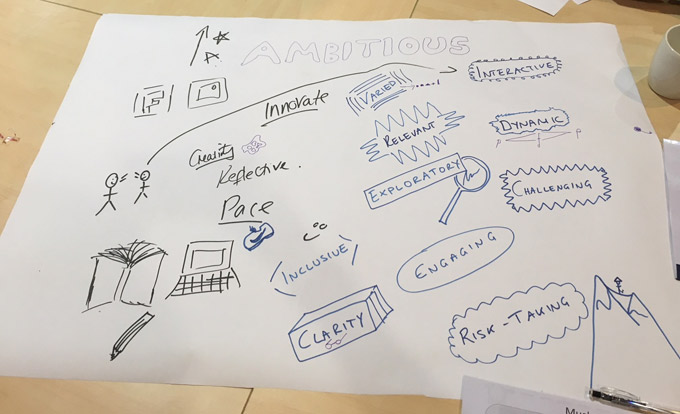 AMBITIOUS
INTERACTIVE
VARIED
Innovate
RELEVANT
DYNAMIC
P P
Creativity
Reflective.
EXPLORATORY
CHALLENGING
Pace
INCLUSIVE
ENGAGING
CLARITY
RISK-TAKING